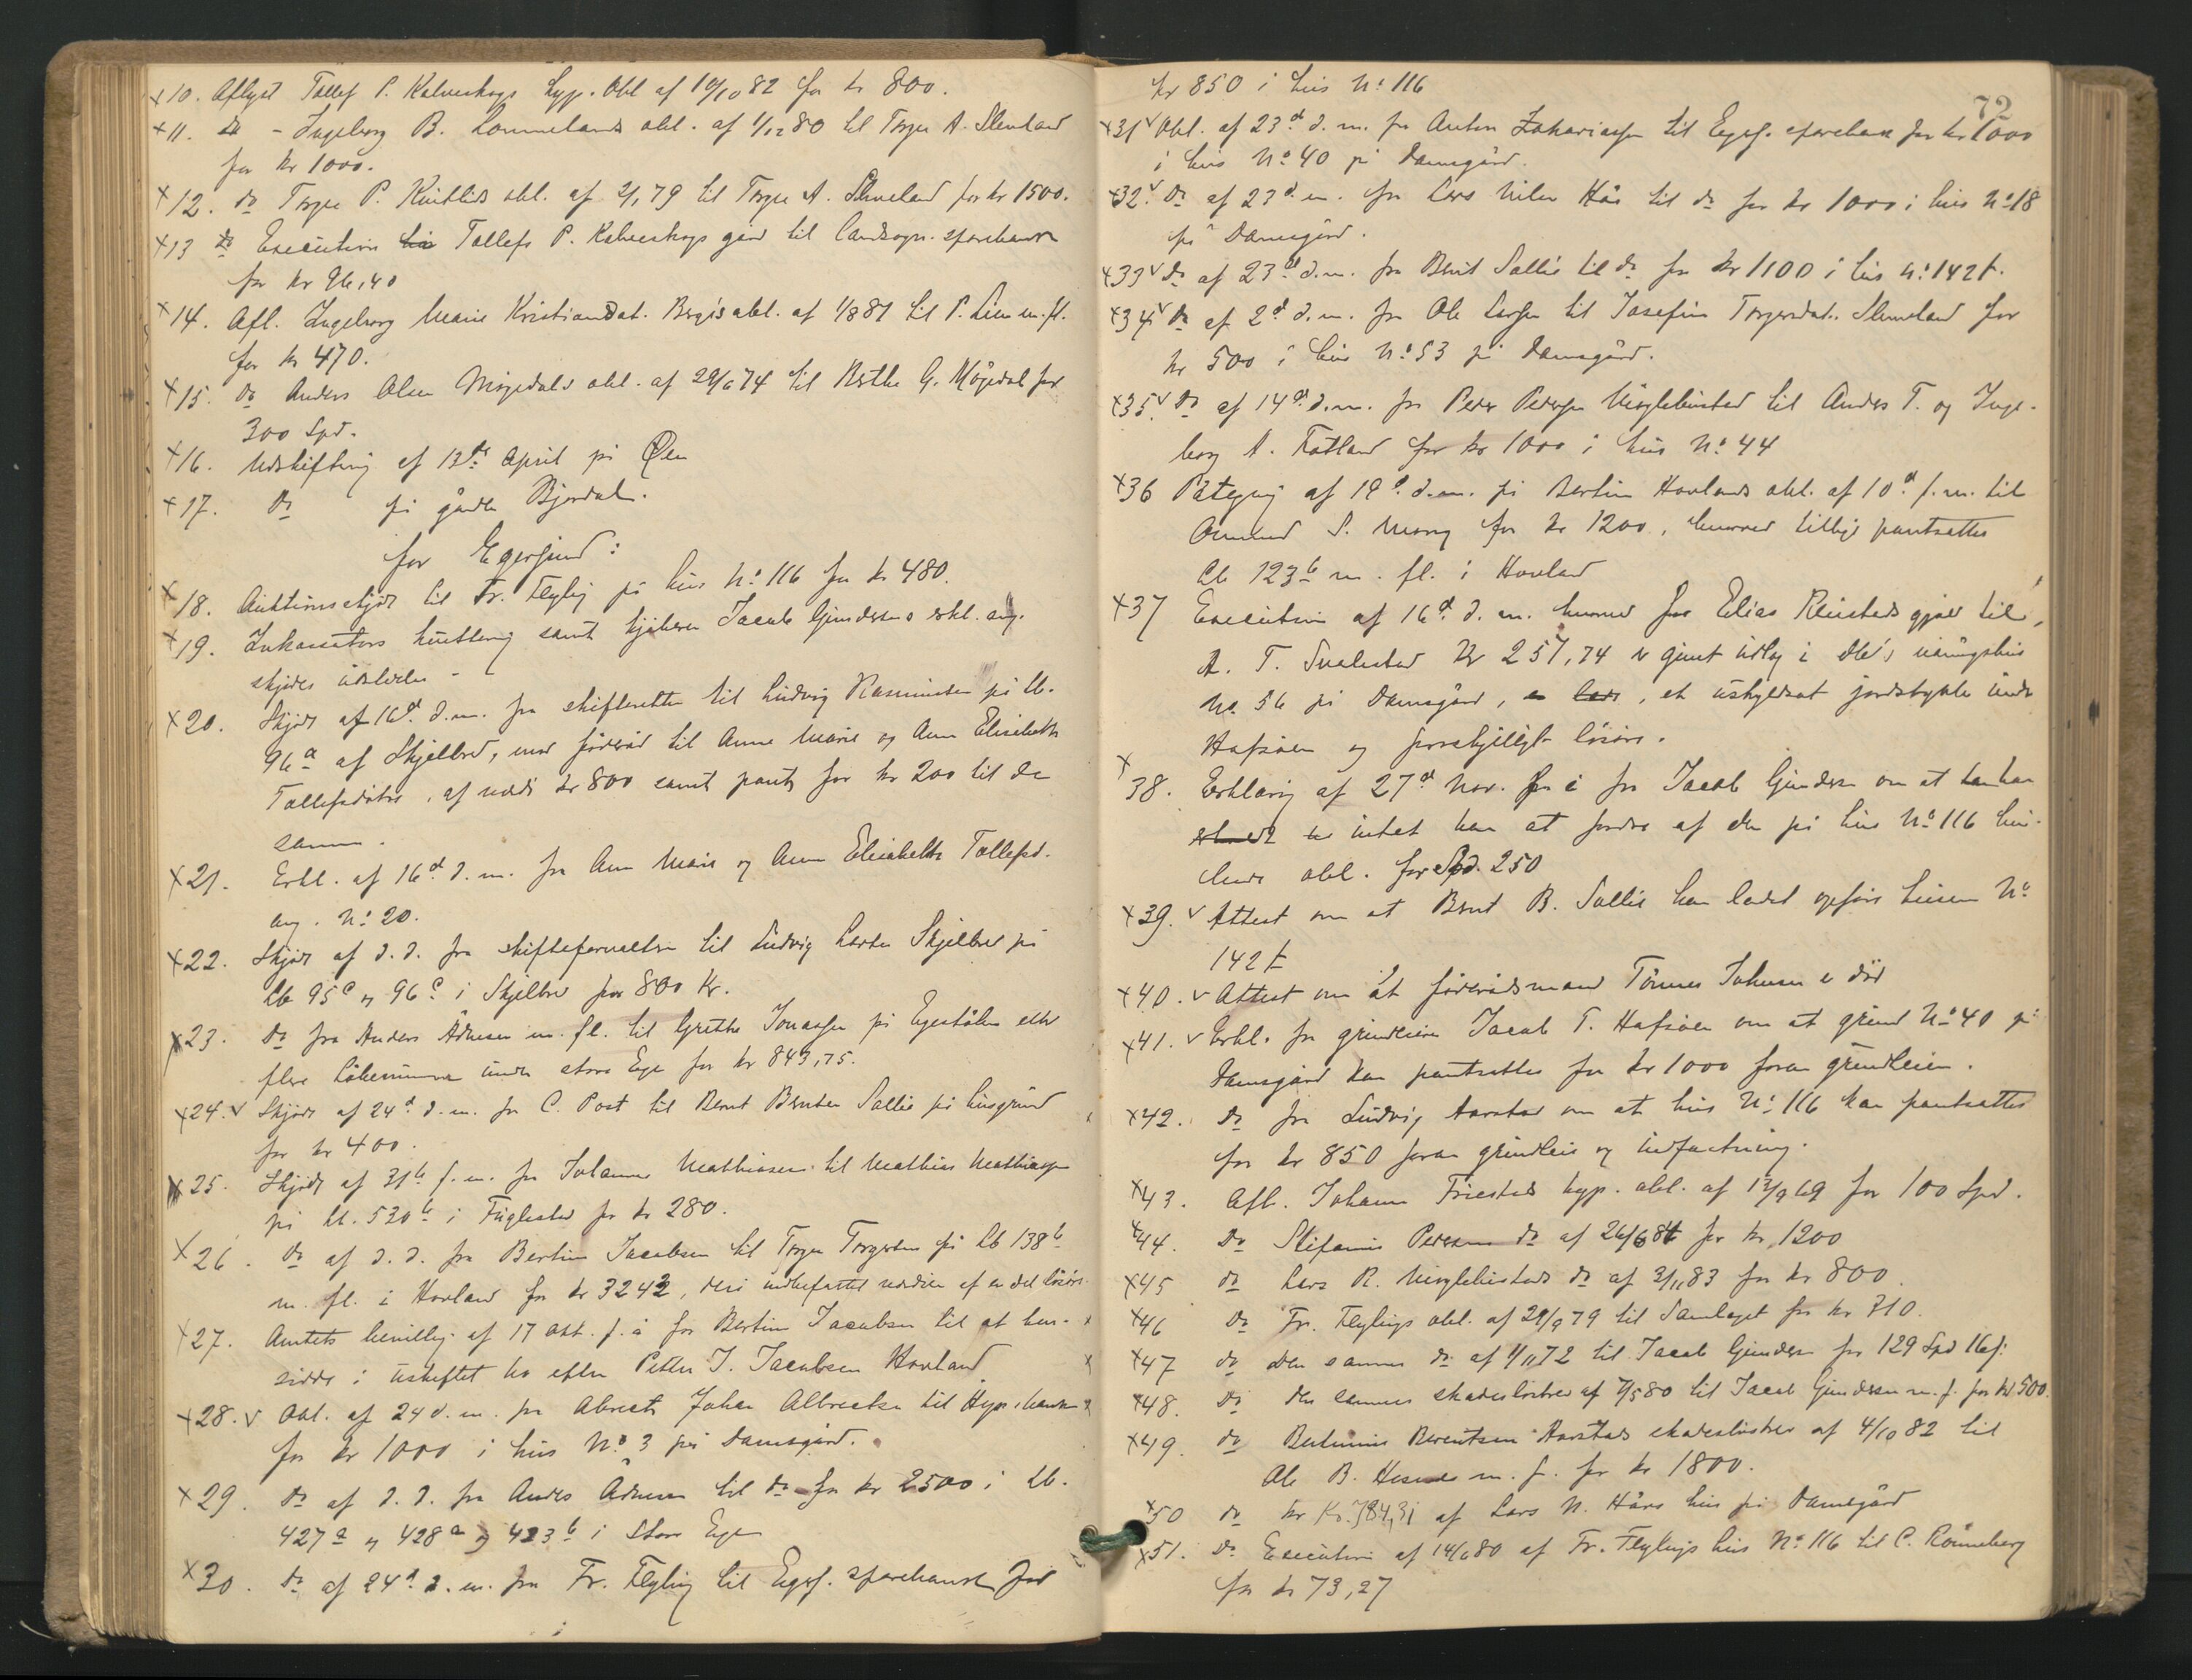 +10. Aflyst Tollef P. Kalveskogs hyp. Obl af 10/10 82 for kr 800.
+11. do - Ingeborg B. Lommelands obl. af 1/12 80 til Torger A. Slemland
for kr 1000.
+12. do Torger P. Kvitlids obl. af 2/1 79 til Torger A. Slemeland for kr 1500.
+13 do Execution Tollefs P. Kalveskogs gård til Landsogn. sparebank
for kr 96,40
+14. Afl. Ingeborg Marie Kristiansdat. Bergs obl. af 1/8 81 til P. Lien m. fl.
for kr 470.
+15. do Anders Olsen Møgedals obl. af 29/6 74 til Berthe G. Møgedal for
300 Spd.
+16. Udskiftning af 13de April på Øen
+17. do på gården Bjerdal.
for Egersund:
+18. Auktionsskjøde til Fr. Flyling på hus No 116 for kr 480.
+19. Inkassators kvittering samt kjøberen Jacob Gundersens erkl. ang.
skjødes udstedelse -
+20. Skjøde af 16d d. m. fra skifteretten til Ludvig Rasmussen på Lb.
96a af Skjelbred, med föderåd til Anne Marie og Ane Elisabeth
Tollefsdötre, af værdi kr 800 samt pant for kr 200 til de
samme.
+21. Erkl. af 16d d. m. fra Ane Marie og Anne Elisabeth Tollefsd.
ang. No 20.
+22. Skjøde af d. d. fra skifteforvalteren til Ludvig Larsen Skjelbred på
Lb 95c og 96c i Skjelbred for 800 Kr.
+23. do fra Anders Ådnesen m. fl. til Grethe Jonassen på Egestølen eller
flere Löbenummere under store Ege for kr 843,75.
+24. v Skjøde af 24d d. m. fra C. Post til Bernt Berntsen Sallie på husgrund
for kr 400.
+25. Skjøde af 31te f. m. fra Johannes Mathiasen til Mathias Mathiassen
på Lb. 530b i Fuglestad for kr 280.
+26. do af d. d. fra Bertin Jacobsen til Torger Torgersen på Lb 138b
m. fl. i Hovland for kr 3242, deri indbefattet værdien af en del lösöre
+27. Amtets bevilling af 17 okt. f. å for Bertin Jacobsen til at hen-
sidde i uskiftet bo efter Petter J. Jacobsen Hovland
+28. v Obl. af 24 d. m. fra Abrect Johan Albrectsen til Hyp. banken
for kr 1000 i hus No 3 på Damsgård.
+29. do af d. d. fra Anders Ådnesen til do for kr 2500 i Lb.
427a og 428a og 423b i Store Ege
+30. do af 24d d. m. fra Fr. Flyling til Egers. sparebank for
72
kr 850 i hus No 116
+31 v Obl. af 23d d. m. fra Anton Zakariassen til Egers. sparebank for kr 1000
i hus No 40 på Damsgård.
+32. v do af 23d m. fra Lars Nilsen Hås til do for kr 1000 i hus No 18
på Damsgård.
+33 v do af 23d d. m. fra Bernt Sallie til do for kr 1100 i hus No 142 t.
+34 v do af 2d d. m. fra Ole Larsen til Josefine Torgersdat. Slemeland for
kr 500 i hus No 53 på Damsgård.
+35 v do af 14d d. m. fra Peder Pedersen Møglebustad til Anders T. og Inge-
borg A. Fotland for kr 1000 i hus No 44
+36 Påtegning af 19d d. m. på Bertin Hovlands obl. af 10d f. m. til
Omund S. Mong for kr 1200, hvorved tillige pantsættes
Lb 123b m. fl. i Hovland
+37 Execution af 16d d. m. hvorved for Elias Reiestads gjæld til
A. T. Svalestad Kr 257,74 er gjort udlæg i dbo's våningshus
No 56 på Damsgård, et uskyldsat jordstykke under
Hafsöen og forskjelligt lösöre.
+38. Erklæring af 27d Nov. f. å fra Jacob Gundersen om at han
intet har at fordre af den på hus No 116 hvi-
lende obl. for Spd. 250
+39. v Attest om at Bernt B. Sallie har ladet opføre husen No
142 t
+40. v Attest om at föderådsmand Tönnes Johnsen er död
+41. v Erkl. fra grundeier Jacob T. Hafsöen om at grund No 40 på
Damsgård kan pantsættes for kr 1000 foran grundleien.
+42. do fra Ludvig Aarstad om at hus No 116 kan pantsættes
for kr 850 foran grundleie og indfæstning.
+43. Afl. Johan Friestads hyp. obl. af 12/9 69 for 100 Spd.
+44. do Stefanus Pedersens do af 26/6 84 for kr 1200
+45 do Lars R. Møglebustads do af 3/11 83 for kr 800
+46 do Fr. Flylings obl. af 29/9 79 til Samlaget for kr 710.
+47 do den sammes do af 4/11 72 til Jacob Gundersen for 129 Spd 16 s.
+48. do den sammes skadeslösbrev af 7/5 80 til Jacob Gundersen m. f. for kr 500.
+49. do Berentsen Aarstads skadeslösbrev af 4/10 82 til
Ole B. Hesnes m. f. for kr 1800.
+50 do kr Kr. 784,31 af Lars N. Håas hus på Damsgård
+51. do Execution af 14/6 80 af Fr. Flylings hus No 116 til C. Rönneberg
for kr 73,27